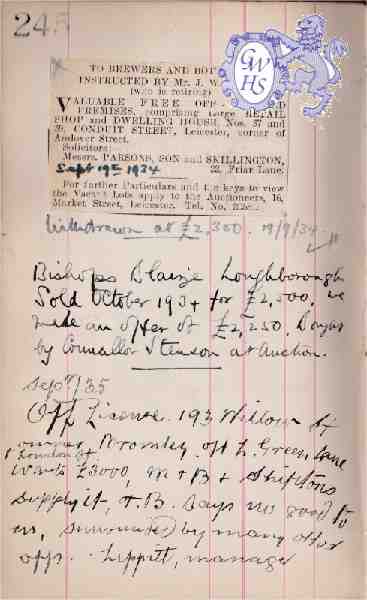 245
TO BREWERS AND BOT
INSTRUCTED BY Mr. J. W.
(who is retiring)
VALUABLE FREE OFF
PREMISES, comprising Large RETAIL
SHOP and DWELLING HOUSE, Nos. 37 and
39, CONDUIT STREET, Leicester, corner of
Andover Street.
Solicitors:
Messrs. PARSONS, SON and SKILLINGTON,
Friar Lane.
Sept 19th 1934
For further Particulars and the keys to view
the Vacant Lots apply to the Auctioneers, 16,
Market Street, Leicester. Tel. No.
Withdrawn at £2,300. 19/9/34
GWHS
Bishops Blaize Loughborough
Sold October 1934 for £2,500, we
made an offer of £2,250. Bought
by Councillor Stenson at Auction.
Sept/35
Off License. 193 Willow St
owner, Bromley. off L. Green Lane
& London St
Wants £3000, M & B & Shiptons
supply it, T.B. Says no good to
us, surrounded by many other
offs. Lippitt, manager